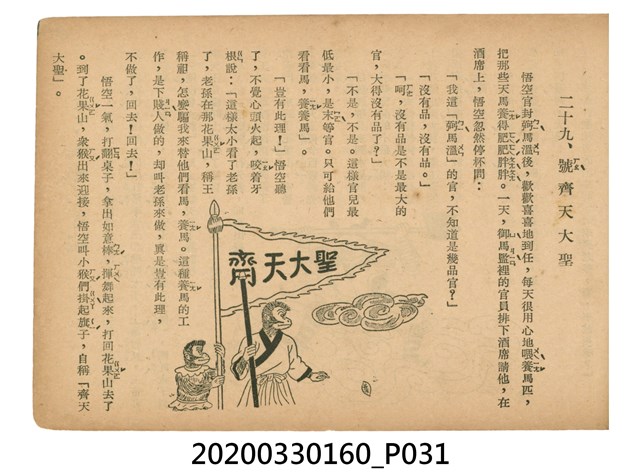 二十九、號齊天大聖
悟空官封弼馬溫後，歡歡喜喜地到任，每天很用心地喂養馬匹，
把那些天馬養得肥肥胖胖。一天，御馬監裡的官員排下酒席請他，在
酒席上，悟空忽然停杯問：
「我這『弼馬溫』的官，不知道是幾品官？」
「沒有品，沒有品。」
「呵，沒有品是不是最大的
官，大得沒有品了？」
「不是，不是。這樣官兒最
低最小，是末等官。只可給他們
看看馬，養養馬」。
「豈有此理！」悟空聽
了，不覺心頭火起，咬着牙
根說：「這樣太小看了老孫
了，老孫在那花果山，稱王
稱祖，怎麼騙我來替他們看馬，養馬。這種養馬的工
作，是下賤人做的，却叫老孫來做，真是豈有此理，
不做了，回去！回去！」
悟空一氣，打翻桌子，拿出如意棒，揮舞起來，打回花果山去了
。到了花果山，衆猴出來迎接，悟空叫小猴們掛起旗子，自稱「齊天
大聖」。
聖大天齊
20200330160_P031